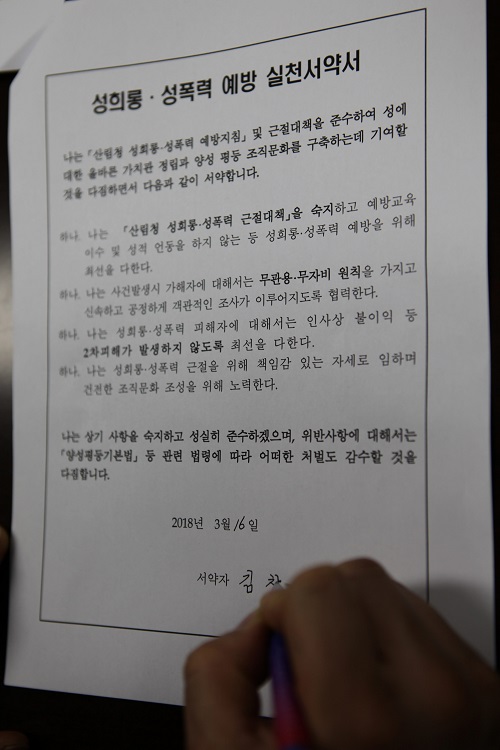 성희롱 · 성폭력 예방 실천서약서
나는「산림청 성희롱·성폭력 예방지침」및 근절대책을 준수하여 성에
대한 올바른 가치관 정립과 양성 평등 조직문화를 구축하는데 기여할
것을 다짐하면서 다음과 같이 서약합니다.
하나. 나는 「산림청 성희롱·성폭력 근절대책」을 숙지하고 예방교육
이수 및 성적 언동을 하지 않는 등 성희롱·성폭력 예방을 위해
최선을 다한다.
하나. 나는 사건발생시 가해자에 대해서는 무관용·무자비 원칙을 가지고
신속하고 공정하게 객관적인 조사가 이루어지도록 협력한다.
하나. 나는 성희롱·성폭력 피해자에 대해서는 인사상 불이익 등
2차피해가 발생하지 않도록 최선을 다한다.
하나. 나는 성희롱·성폭력 근절을 위해 책임감 있는 자세로 임하며
건전한 조직문화 조성을 위해 노력한다.
나는 상기 사항을 숙지하고 성실히 준수하겠으며, 위반사항에 대해서는
「양성평등기본법」 등 관련 법령에 따라 어떠한 처벌도 감수할 것을
다짐합니다.
2018년 3월 16일
서약자 김